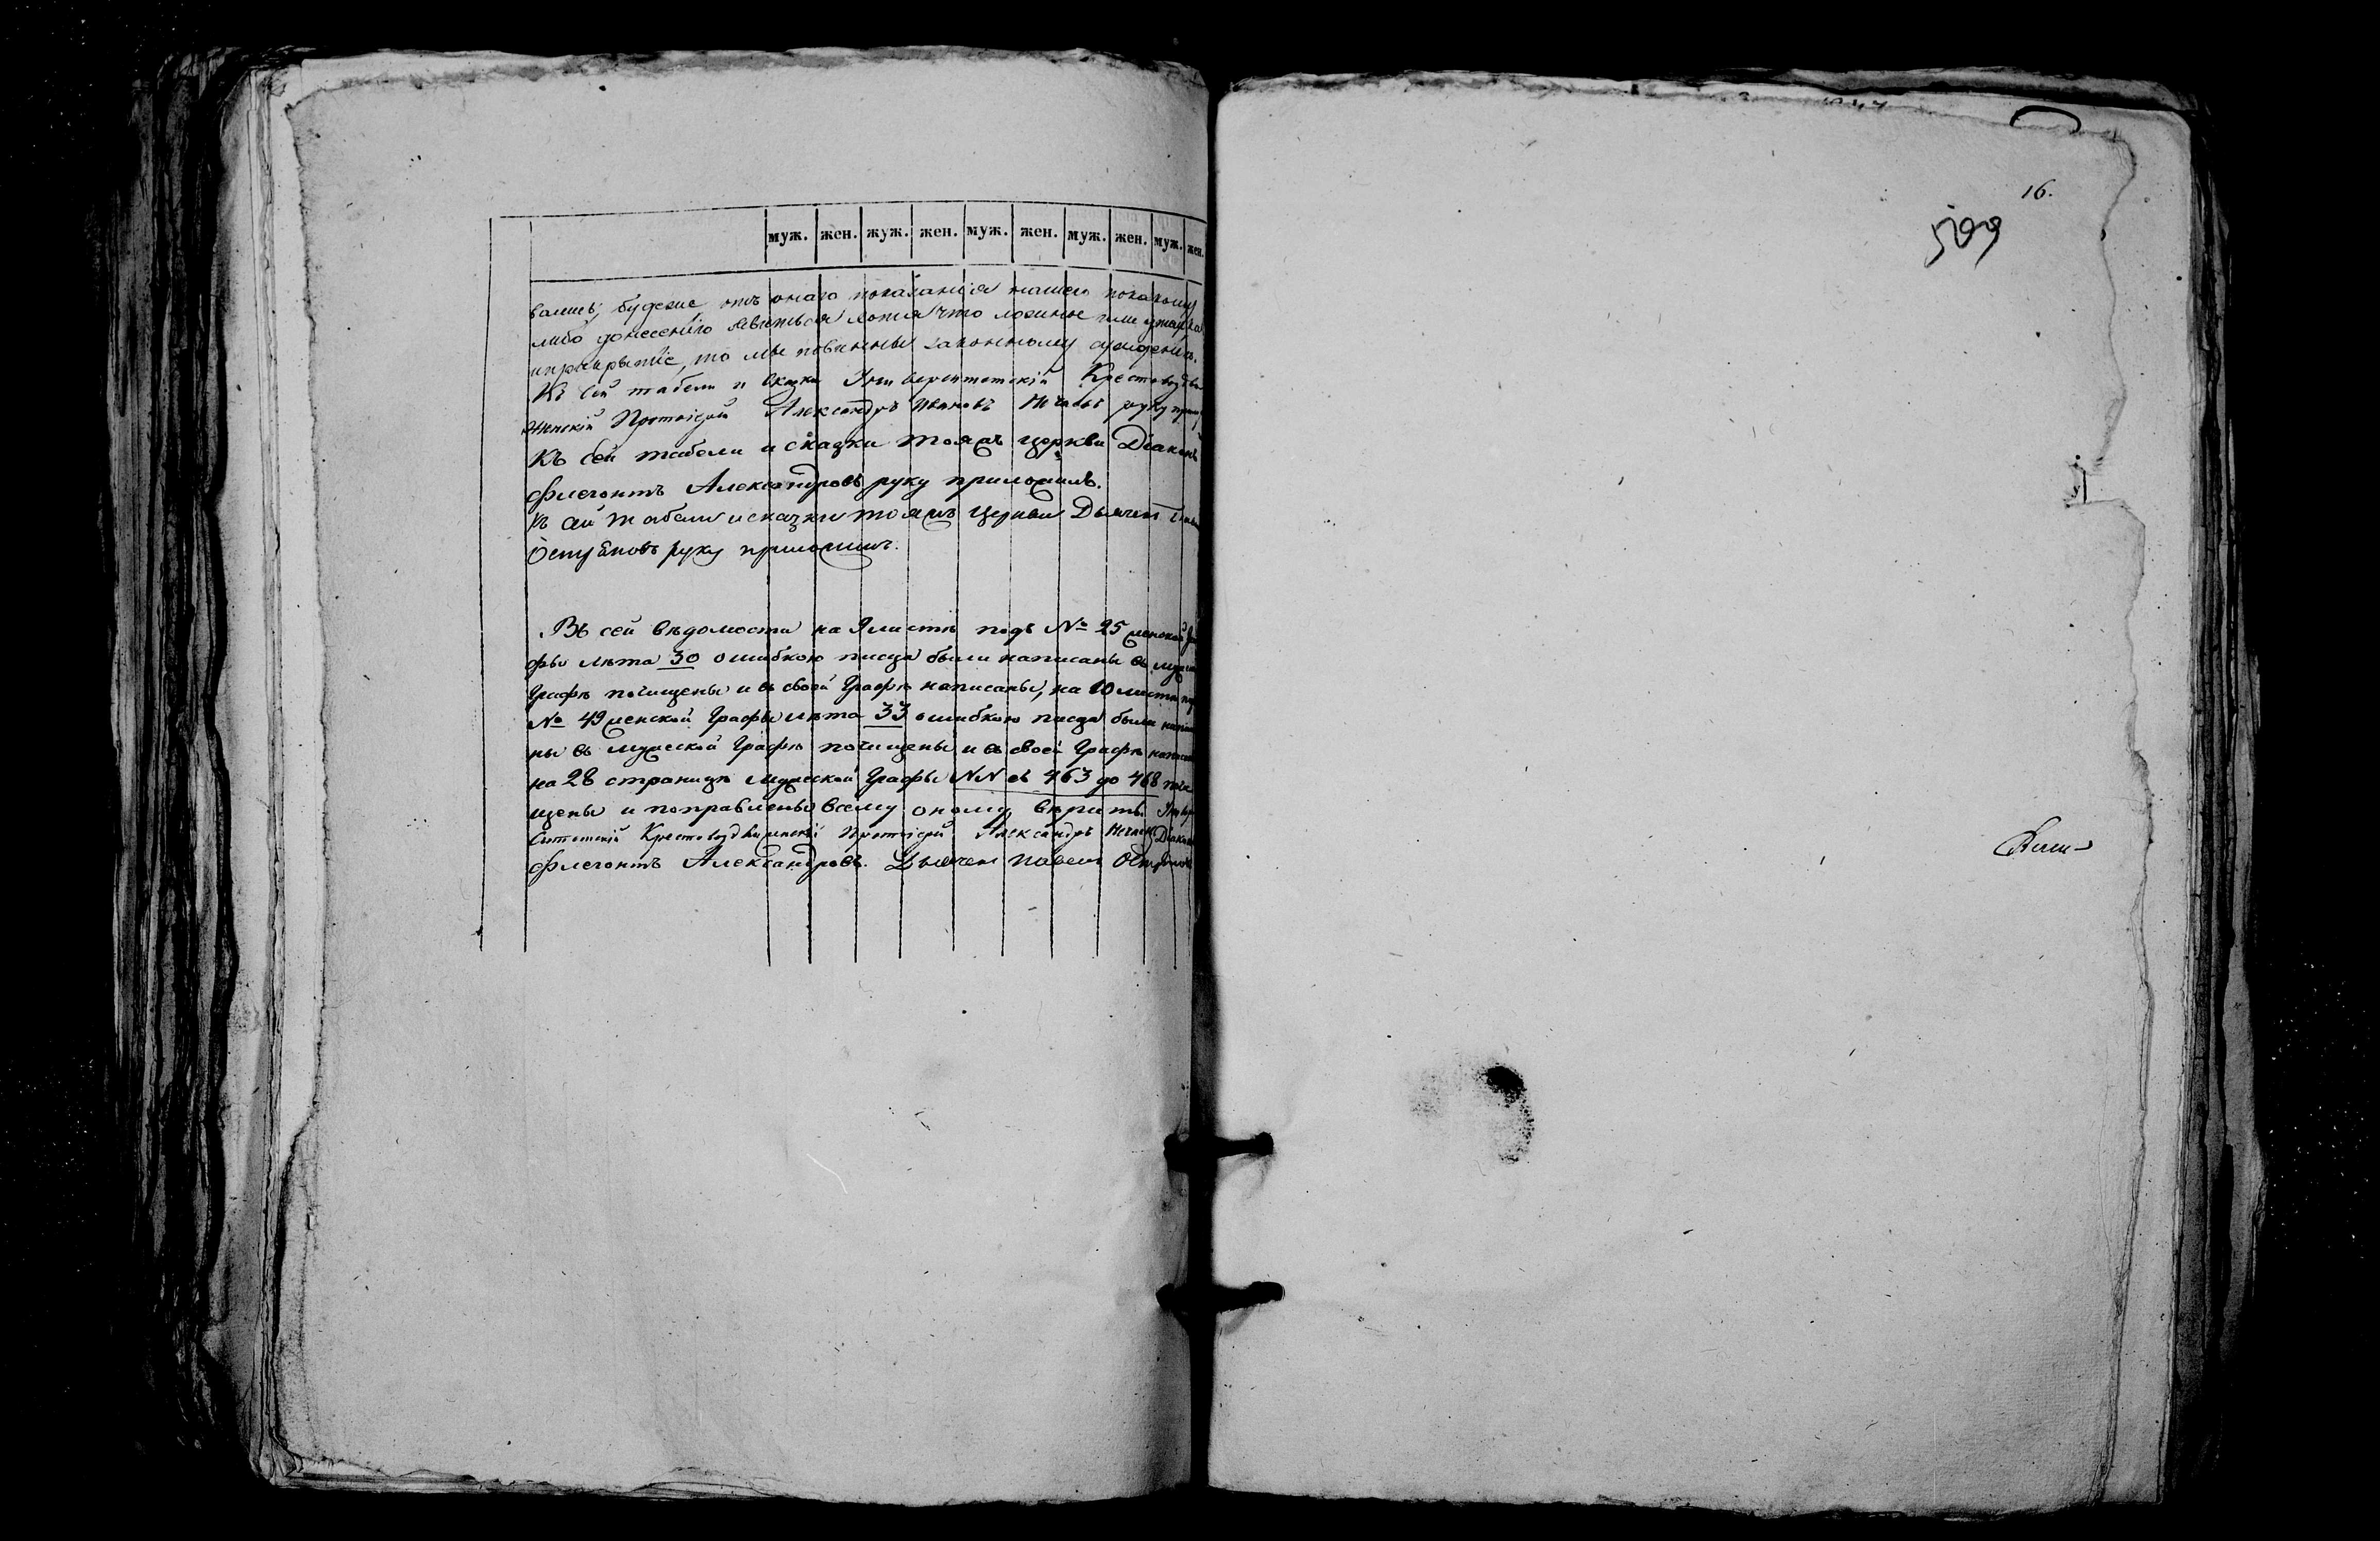 муж. жен. жуж. жен. муж. жен. муж. жен. муж. жен.
буде же отъ онаго показанія нашего по какому
либо донесенію явиться хотя что ложное или утайка
и прикрытіе, то мы повинны законному сужденію.
Къ сей табели и сказки Крестовоздви
женскій Протоіерей Александръ Ивановъ руку
Къ сей табели и сказки тояжъ церкви Діаконъ
Флегонтъ Александровъ руку приложилъ.
Къ сей табели и сказки тояжъ церкви Дьячекъ
руку приложилъ.
Въ сей вѣдомости на листѣ подъ № 25 женской
фы лѣта 30 ошибкою писца были написаны въ
Графѣ почищены и въ своей Графѣ написаны, на 10 листѣ
№ 49 женской Графы лѣта 33 ошибкою писца были
ны въ мужеской Графѣ почищены и въ своей Графѣ
на 28 страницѣ мужеской Графы NN съ 463 до 468
щены и поправлены всему оному вѣрить.
Крестовоздвиженскій Протоіерей Александръ Діаконъ
Флегонтъ Александровъ. Дьячекъ Павелъ
16.
509